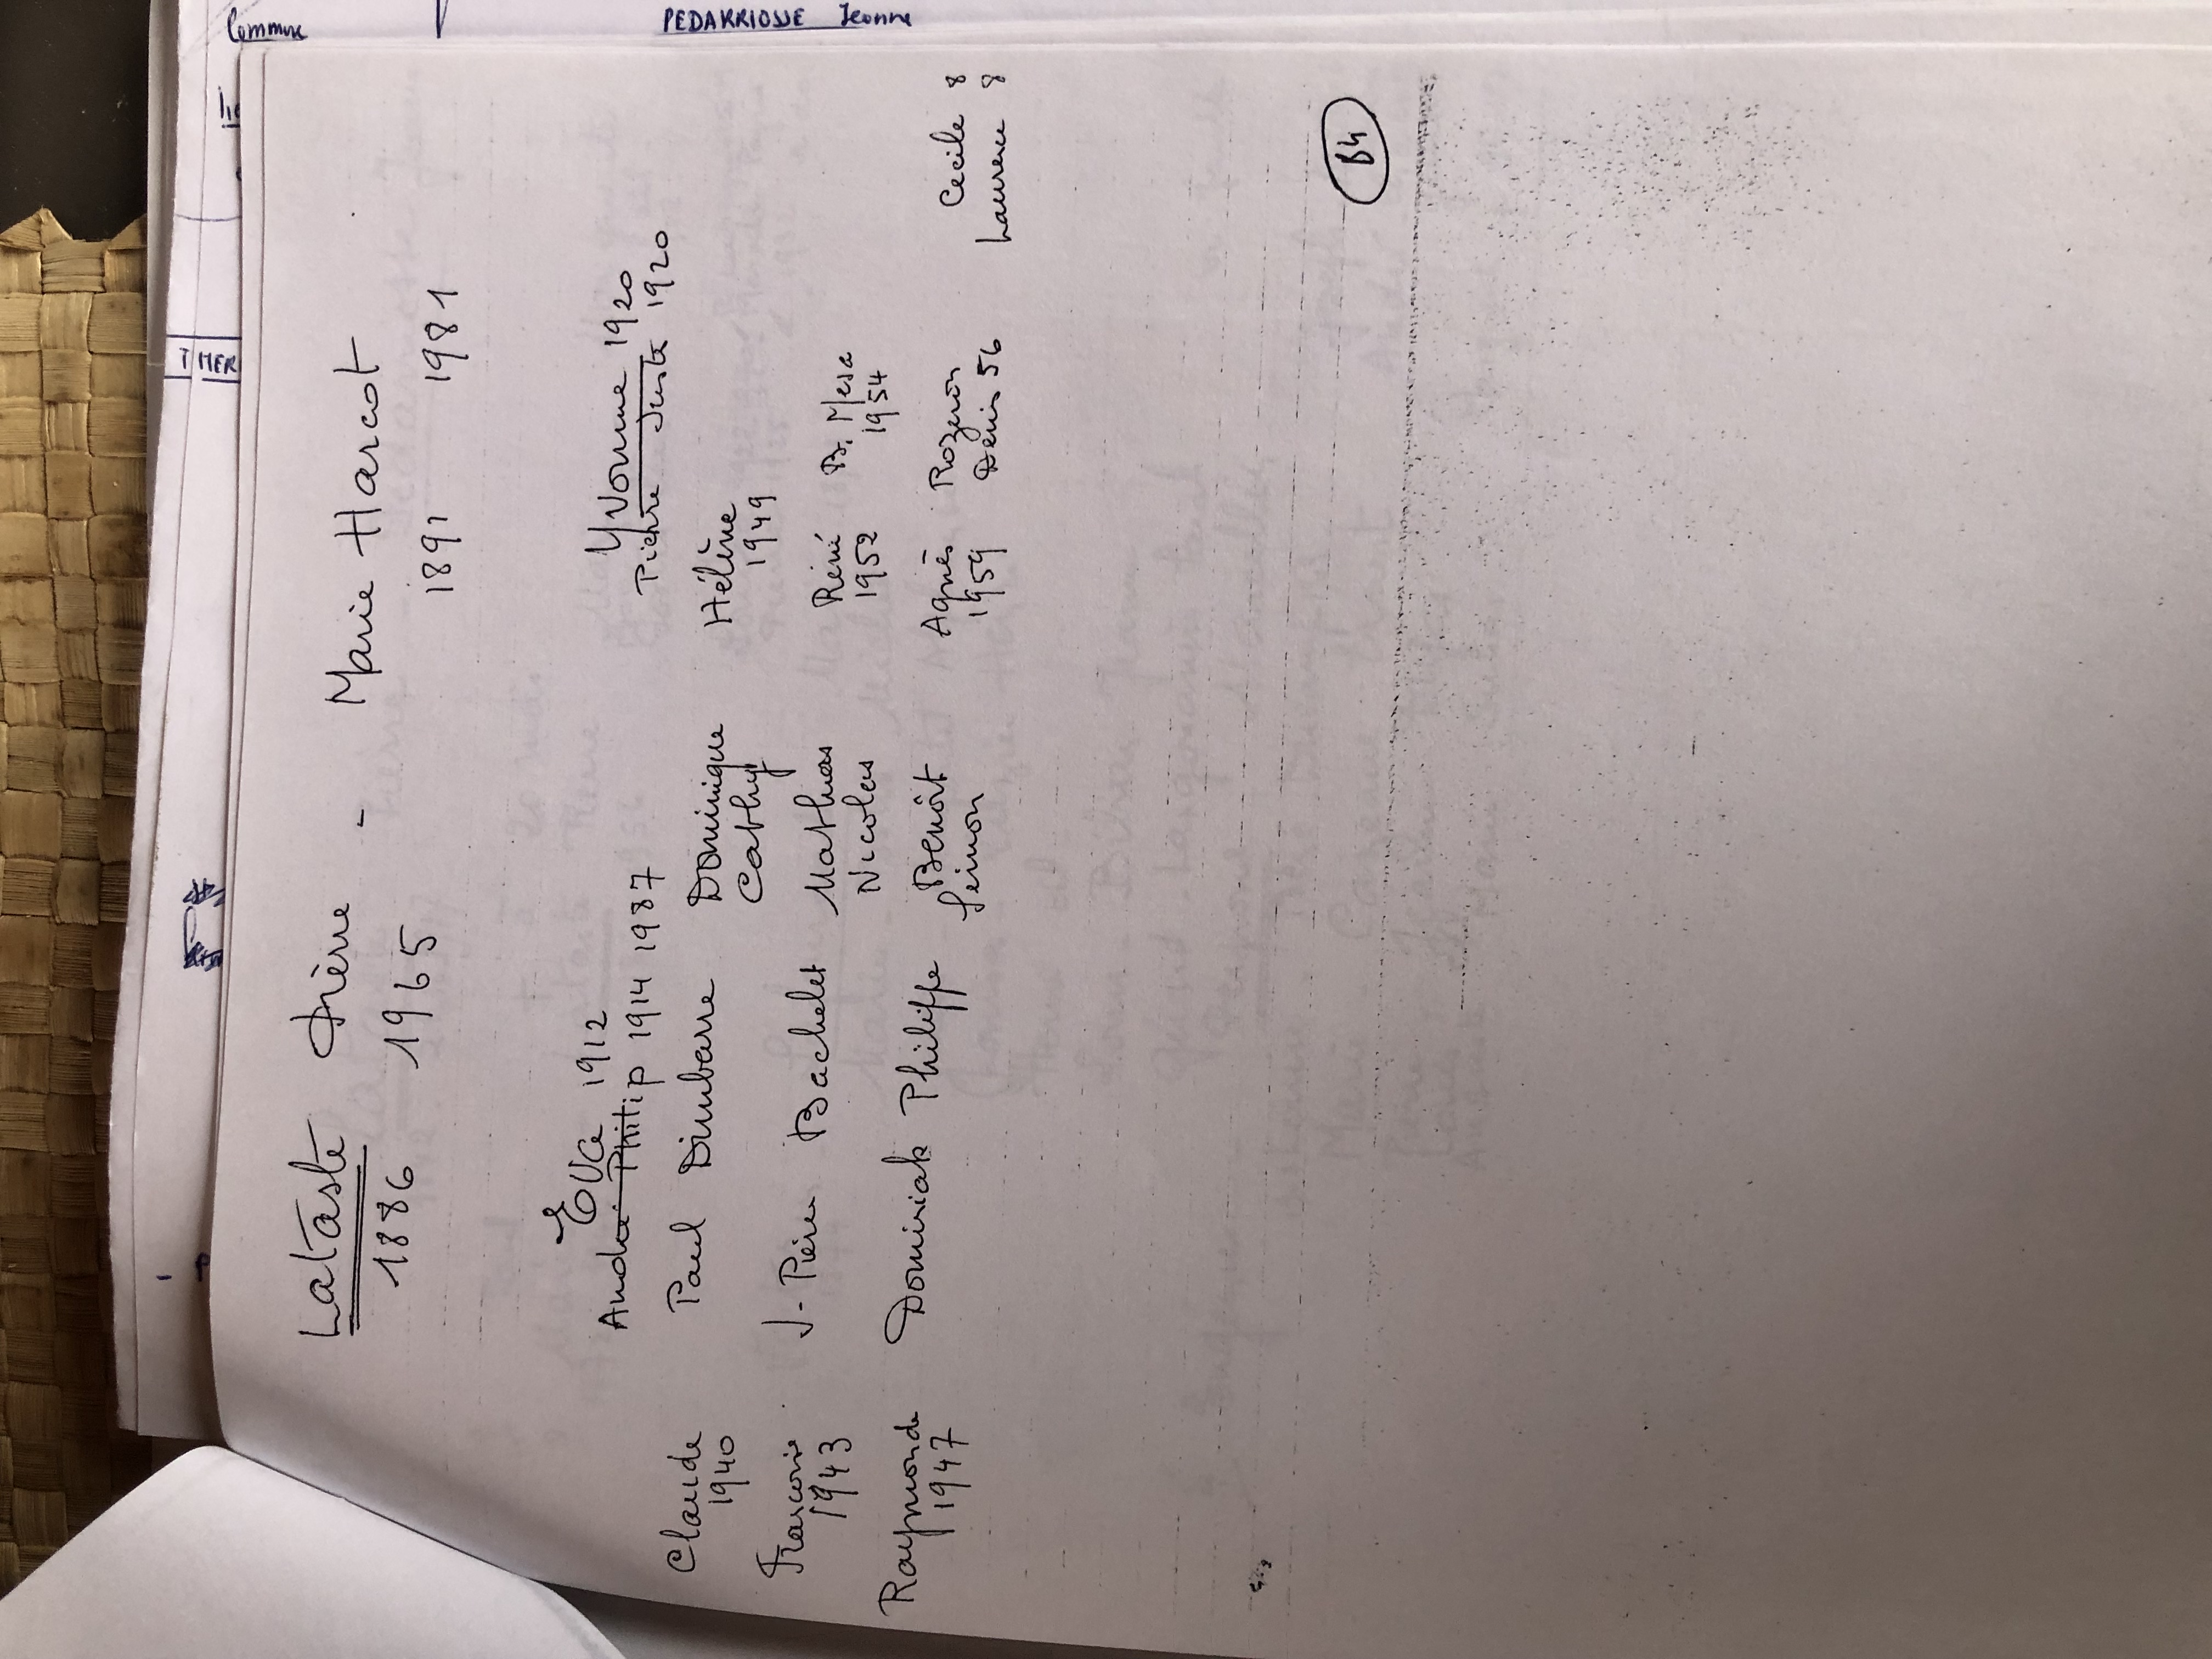 Commune
PEDARRIOSSE Jeanne
MER
Lataste Pierre - Marie Harcot
1886 1965 1891 1981
Eva 1912 Yvonne 1920
André Philip 1914 1987 Pichre Juste 1920
Claude 1940 Paul Dimbarre Dominique Cathy Hélène 1949
Francoise 1943 J-Pierre Bachelet Mathias Nicolas Réné 1952 B. Mesa 1954
Raymonde 1947 Dominiak Philippe Benoit Simon Agnès 1959 Rozeron Denis 56 Cecile 8
Laurence 8
B4